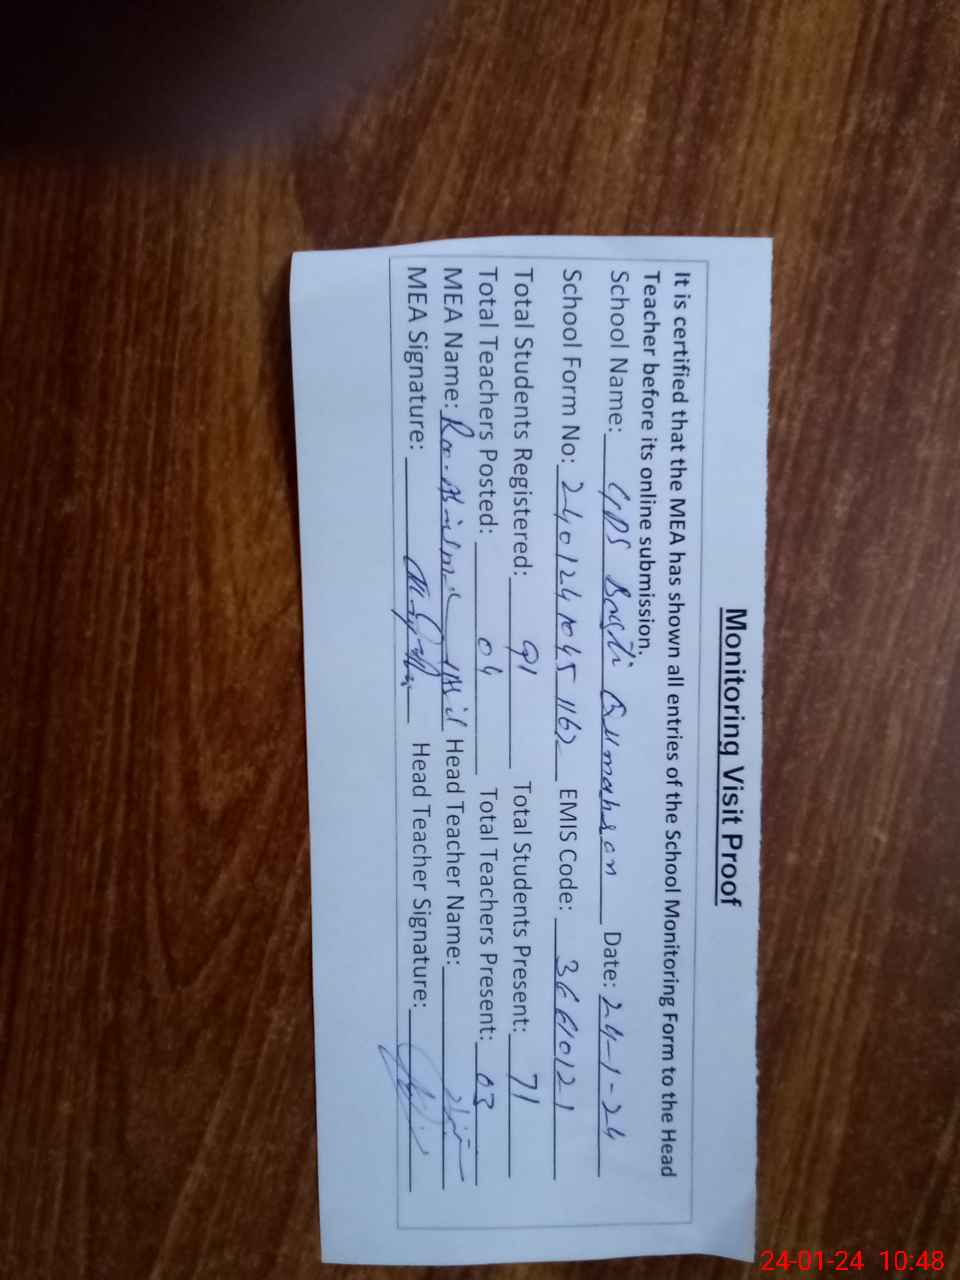 Monitoring Visit Proof
It is certified that the MEA has shown all entries of the School Monitoring Form to the Head
Teacher before its online submission.
School Name: GPS Basti Date: 24-1-24
School Form No: EMIS Code: 36610121
Total Students Registered: 91 Total Students Present: 71
Total Teachers Posted: 04 Total Teachers Present: 03
MEA Name: Head Teacher Name:
MEA Signature: Head Teacher Signature:
24-01-24 10:48